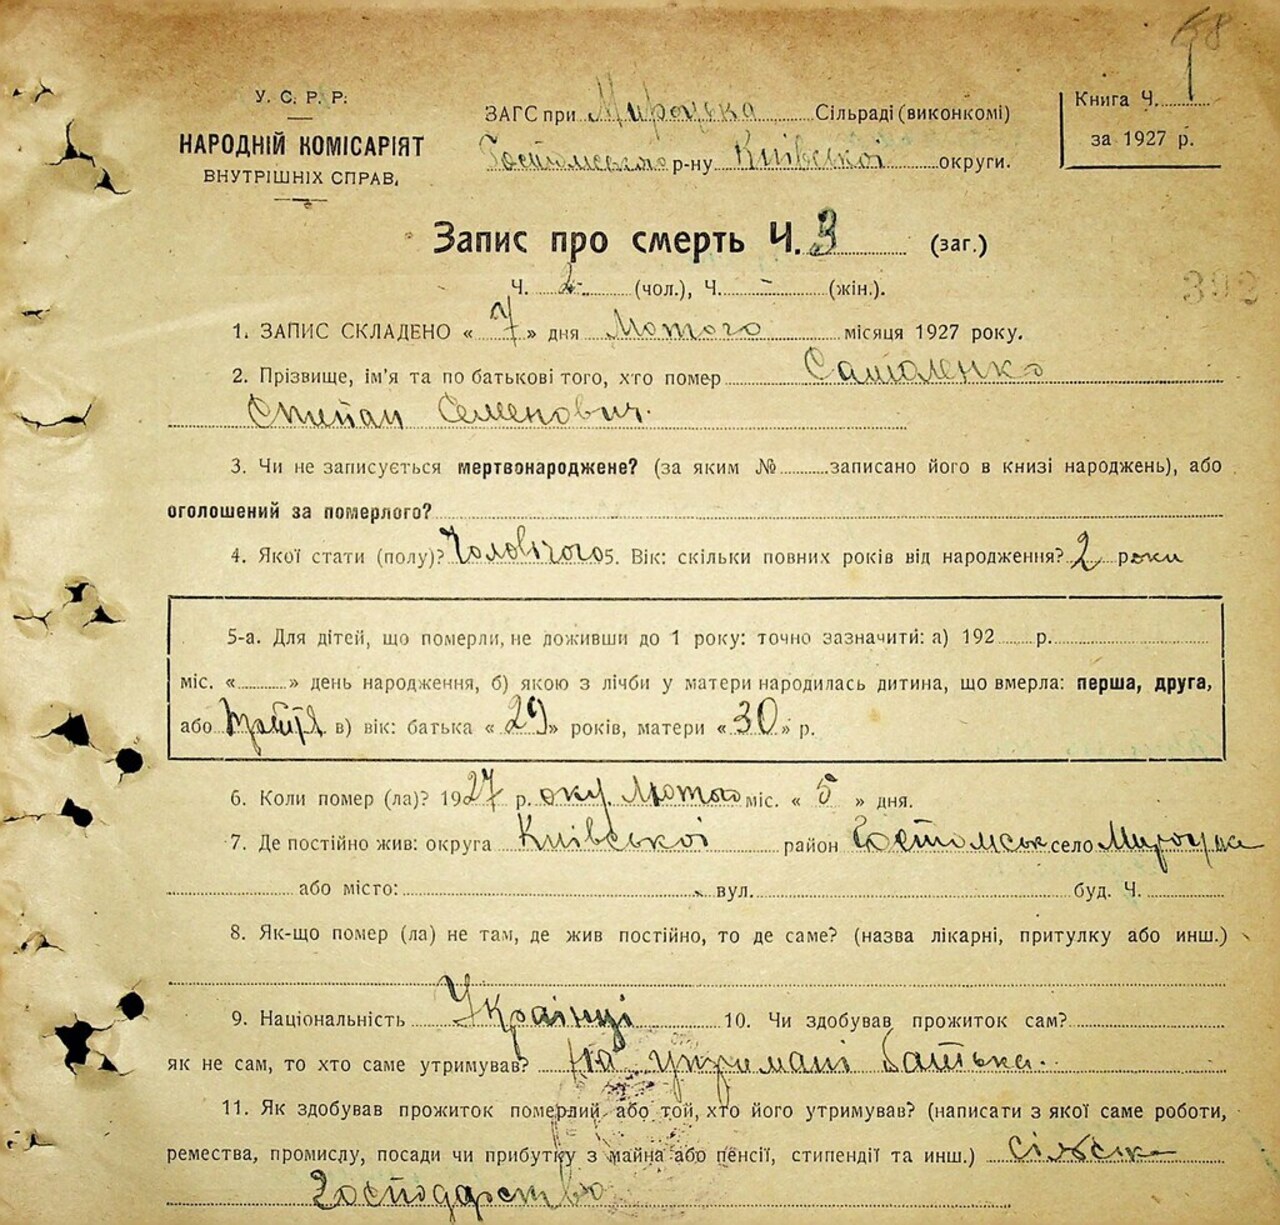 У. С. Р. Р.
НАРОДНІЙ КОМІСАРІЯТ
ВНУТРІШНІХ СПРАВ.
ЗАГС при Мироцька Сільраді (виконкомі)
Гостомського р-ну Київської округи.
Книга Ч.
за 1927 р.
Запис про смерть Ч. 3 (заг.)
Ч. 2 (чол.), Ч. - (жін.).
392
1. ЗАПИС СКЛАДЕНО « 7 » дня Лютого місяця 1927 року.
2. Прізвище, ім'я та по батькові того, хто помер
Степан Семенович.
3. Чи не записується мертвонароджене? (за яким № записано його в книзі народжень), або
оголошений за померлого?
4. Якої стати (полу)? Чоловічого 5. Вік: скільки повних років від народження? 2 роки
5-а. Для дітей, що померли, не доживши до 1 року: точно зазначити: а) 192 р.
міс. « » день народження, б) якою з лічби у матери народилась дитина, що вмерла: перша, друга,
або Третя в) вік: батька « 29 » років, матери « 30 » р.
6. Коли помер (ла)? 1927 р. оку Лютого міс. « 5 » дня.
7. Де постійно жив: округа Київської район Гостомськ село Мироцьке
або місто: вул. буд. Ч.
8. Як-що помер (ла) не там, де жив постійно, то де саме? (назва лікарні, притулку або инш.)
9. Національність Українці 10. Чи здобував прожиток сам?
як не сам, то хто саме утримував? На утримані батька.
11. Як здобував прожиток померлий або той, хто його утримував? (написати з якої саме роботи,
ремества, промислу, посади чи прибутку з майна або пенсії, стипендії та инш.) сільске
господарство